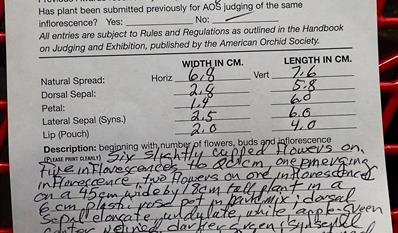 Has plant been submitted previously for AOS judging of the same
inflorescence? Yes: No:
All entries are subject to Rules and Regulations as outlined in the Handbook
on Judging and Exhibition, published by the American Orchid Society.
WIDTH IN CM. LENGTH IN CM.
Natural Spread: Horiz 6.8 Vert 7.6
Dorsal Sepal: 2.8 5.8
Petal: 1.4 6.0
Lateral Sepal (Syns.) 2.5 6.0
Lip (Pouch) 2.0 4.0
Description: beginning with number of flowers, buds and inflorescence
(PLEASE PRINT CLEARLY) Six slightly cupped flowers on
five inflorescences to cm, one emerging
inflorescence, two flowers on one inflorescence
on a 45cm wide by 18cm tall plant in a
6 cm plastic pot in bark mix; dorsal
sepal elongate, undulate, white, apple-green
center, veined darker green; synsepal